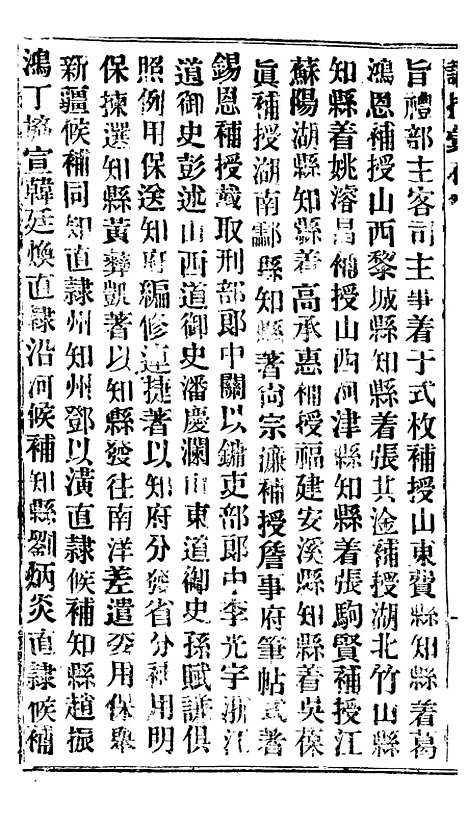 旨禮部主客司主事着于式枚補授山東費縣知縣着葛
鴻恩補授山西黎城縣知縣着張其淦補授湖北竹山縣
知縣着姚濬昌補授山西河津縣知縣着張駒賢補授江
蘇陽湖縣知縣着高承惠補授福建安溪縣知縣着吳葆
眞補授湖南酃縣知縣著尙宗濂補授詹事府筆帖式著
錫恩補授截取刑部郎中關以鏞吏部郎中李光宇浙江
道御史彭述山西道御史潘慶瀾山東道御史孫賦謙俱
照例用保送知府編修連捷著以知府分發省分補用明
保揀選知縣黃彝凱著以知縣發往南洋差遣委用保舉
新疆候補同知直隸州知州鄧以潢直隸候補知縣趙振
鴻丁協宣韓廷煥直隸沿河候補知縣劉炳炎直隸候補